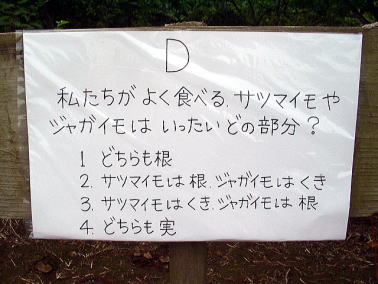 D
私たちが よく食べる、サツマイモや
ジャガイモは いったい どの部分？
1 どちらも根
2. サツマイモは 根、ジャガイモは くき
3. サツマイモは くき、ジャガイモは 根
4. どちらも 実